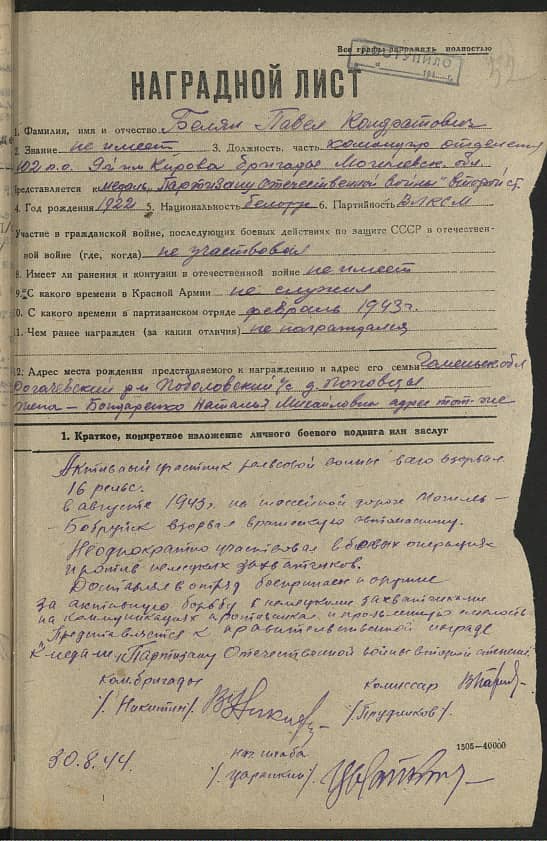 Все графы заполнять полностью
ПОСТУПИЛО
НАГРАДНОЙ ЛИСТ
1. Фамилия, имя и отчество Белян Павел Кондратович
2. Звание не имеет 3. Должность, часть командир отделения
102 п.о. им Кирова бригады Могилевск. обл.
представляется к медаль "Партизану Отечественной войны" второй ст.
4. Год рождения 1922 5. Национальность белорус 6. Партийность ВЛКСМ
Участие в гражданской войне, последующих боевых действиях по защите СССР в отечествен-
ной войне (где, когда) не участвовал
8. Имеет ли ранения и контузии в отечественной войне не имеет
9. С какого времени в Красной Армии не служил
0. С какого времени в партизанском отряде февраль 1943г.
1. Чем ранее награжден (за какия отличия) не награждался
2. Адрес места рождения представляемого к награждению и адрес его семьи Гомельск обл
Рогачевский р-н Поболовский с/с д.
жена – Бондаренко Наталья Михайловна адрес тот-же
1. Краткое, конкретное изложение личного боевого подвига или заслуг
Активный участник рельсовой войны всего взорвал
16 рельс.
в августе 1943г. на шоссейной дороге Могилев –
Бобруйск взорвал вражескую автомашину.
Неоднократно участвовал в боевых операциях
против немецких захватчиков.
Доставлял в отряд боеприпасы и оружие
за активную борьбу с немецкими захватчиками
на коммуникациях противника и проявленную смелость
Представляется к правительственной награде
к медали "Партизану Отечественной войны второй степени"
Комбригады комиссар
/. Никитин/. /. Прудников/.
1505–40000
30.8.44. нач штаба